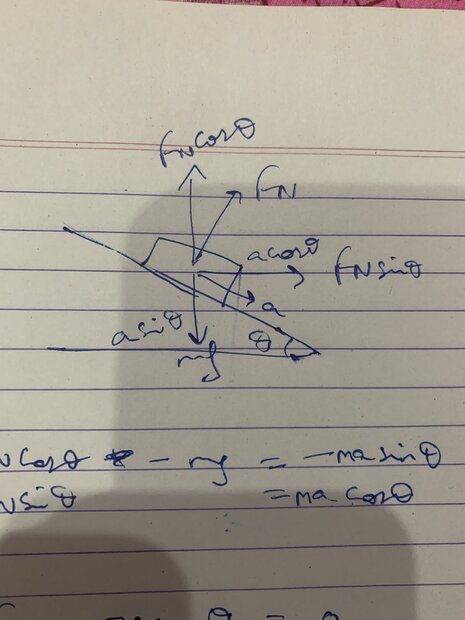 F_N cosθ
F_N
a cosθ
F_N sinθ
a
a sinθ
θ
mg
N cosθ - mg = -ma sinθ
N sinθ = ma cosθ